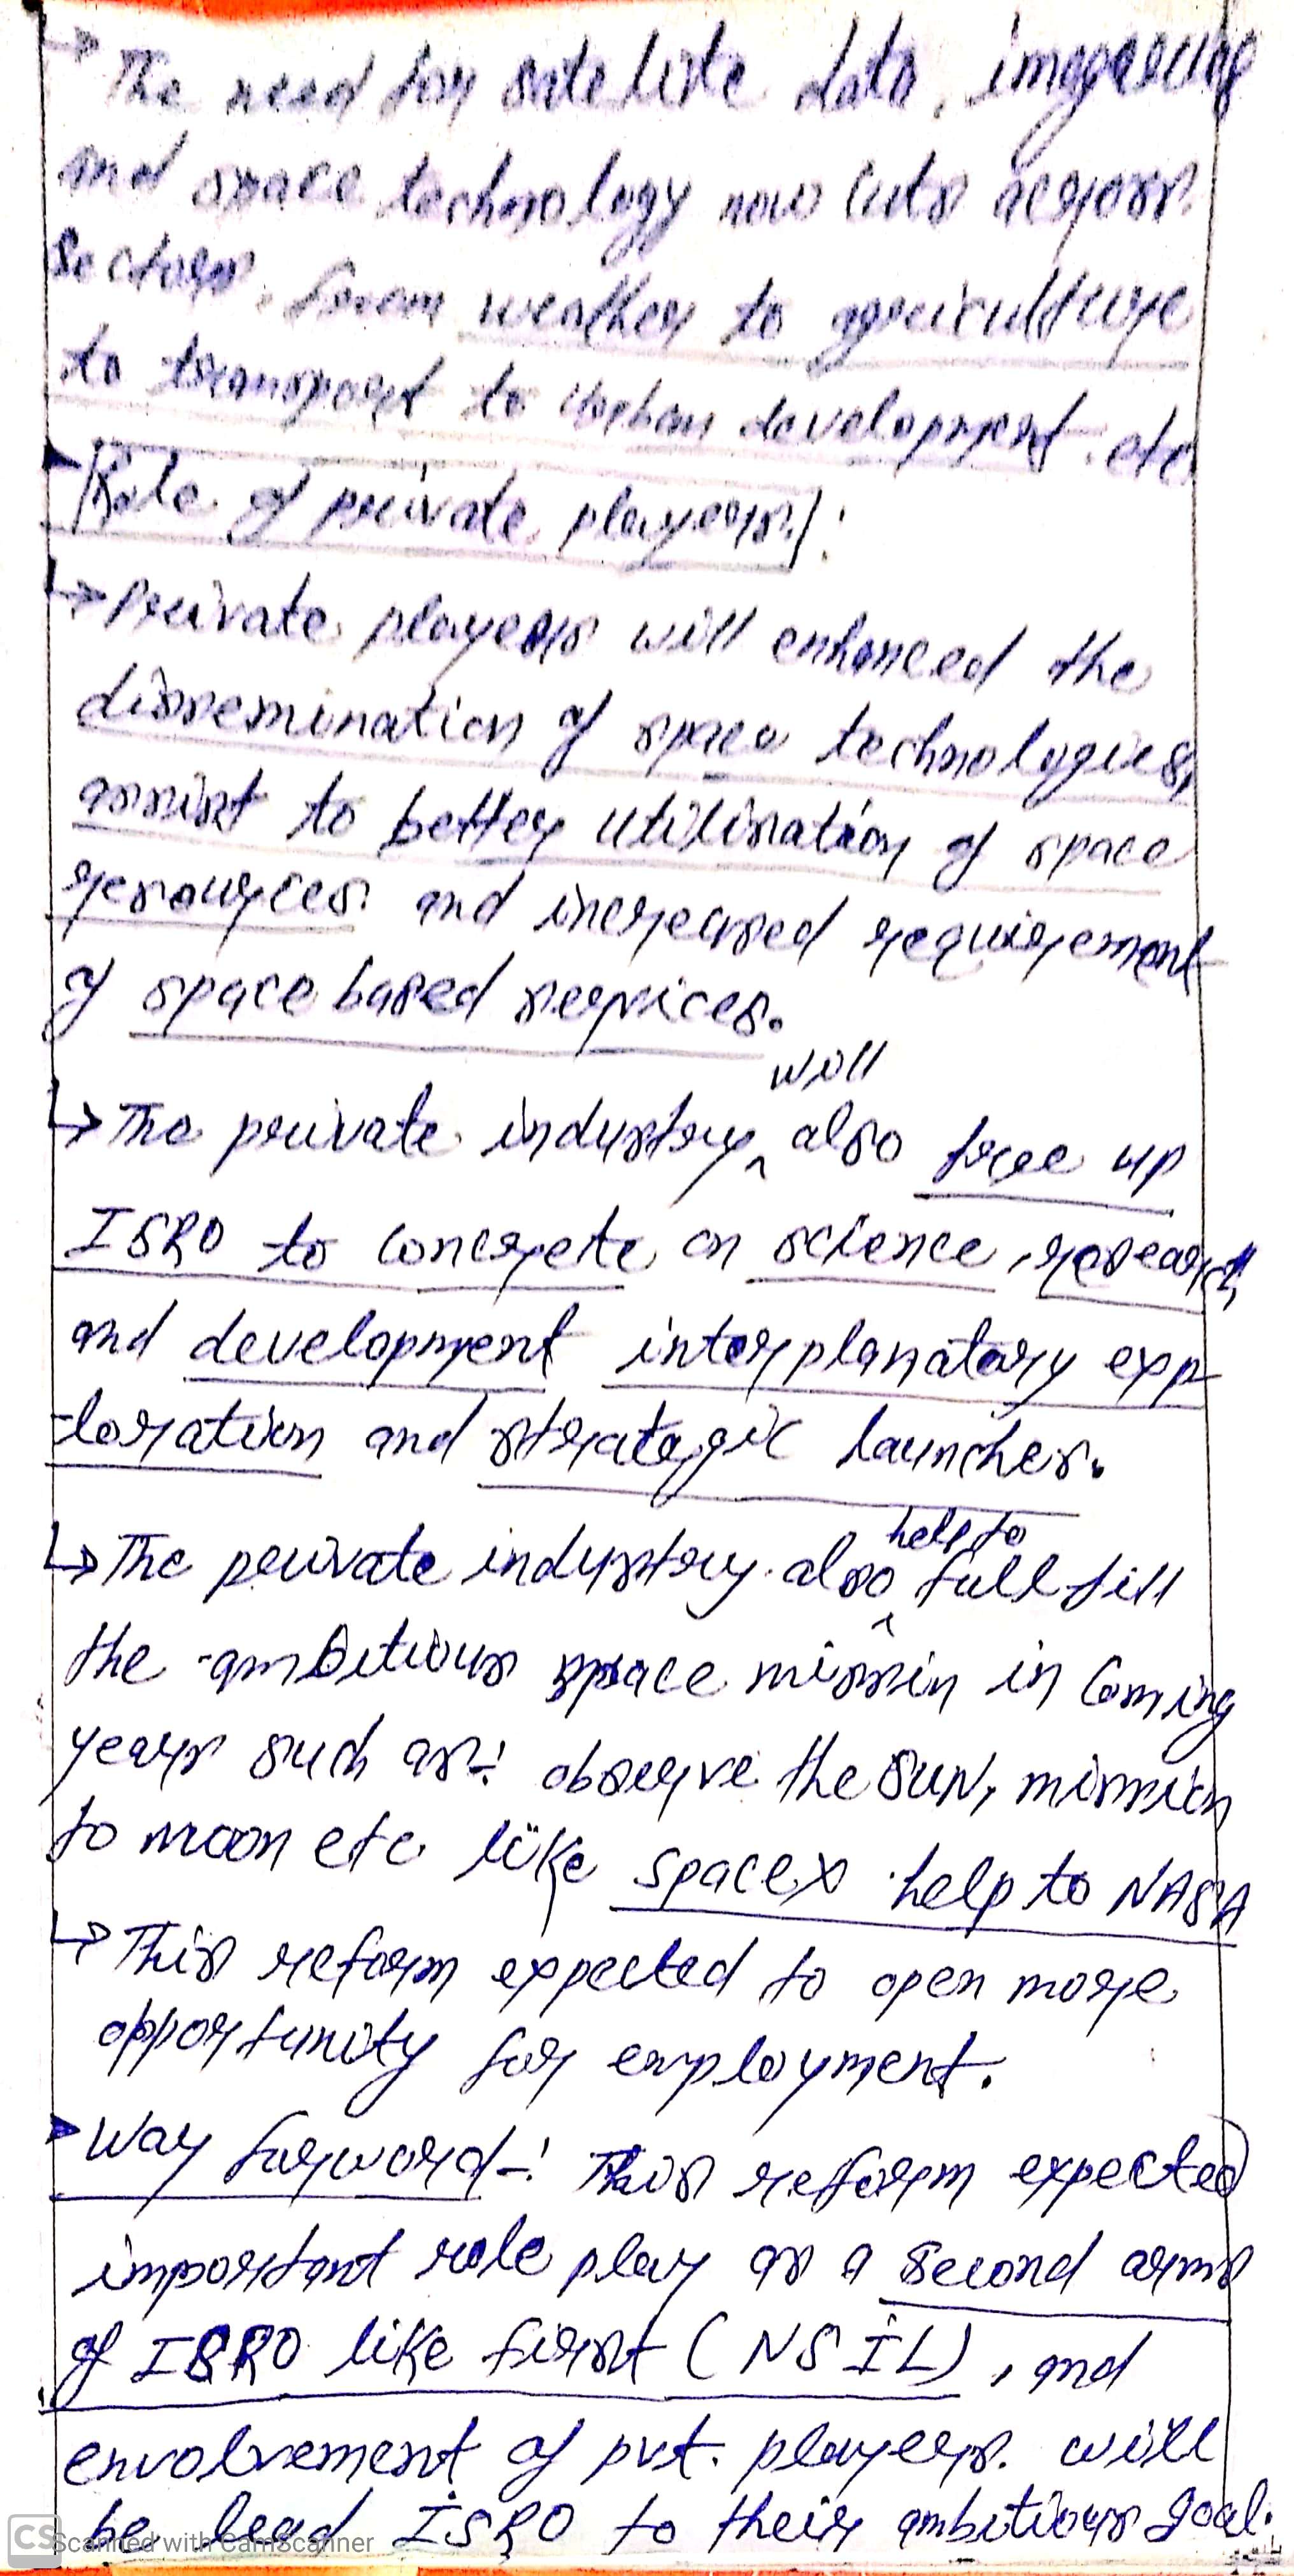 ↳ The need for satelite data, imageries
and space technology now cuts across
sectors, from weather to agriculture
to transport to urban development etc
▸ [Role of private players]:
↳ Private players will enhanced the
dissemination of space technologies,
assist to better utilisation of space
resources and increased requirement
of space based services.
↳ The private industry will also free up
ISRO to concrete on science, research
and development interplanatary exp
-loration and strategic launches.
↳ The private industry also help to full fill
the ambitious space missin in coming
years such as: observe the SUN, mission
to moon etc like spacex help to NASA
↳ This reform expected to open more
opportunity for employment.
▸ Way forword-: This reform expected
important role play as a second arms
of ISRO like first (NSIL), and
envolvement of pvt. players will
be lead ISRO to their ambitious goal.
CS Scanned with CamScanner